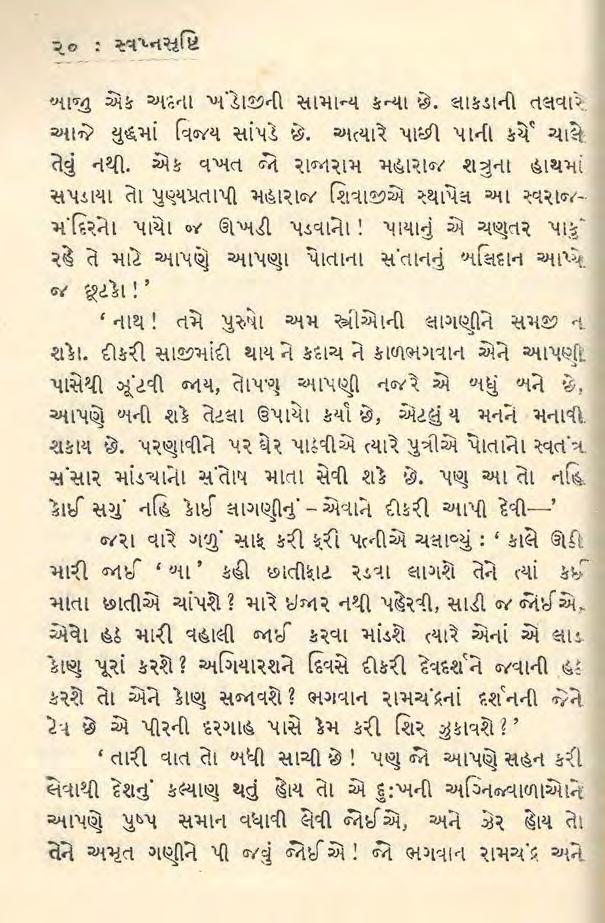 ૨૦ : સ્વપ્નસૃષ્ટિ
બાજુ એક અદના ખંડોજીની સામાન્ય કન્યા છે. લાકડાની તલવારે
આજે યુદ્ધમાં વિજય સાંપડે છે. અત્યારે પાછી પાની કર્યે ચાલે
તેવું નથી. એક વખત જો રાજારામ મહારાજ શત્રુના હાથમાં
સપડાયા તો પુણ્યપ્રતાપી મહારાજ શિવાજીએ સ્થાપેલ આ સ્વરાજ-
મંદિરનો પાયો જ ઊખડી પડવાનો! પાયાનું એ ચણતર પાકું
રહે તે માટે આપણે આપણા પોતાના સંતાનનું બલિદાન આપ્યે
જ છૂટકો!’
‘નાથ! તમે પુરુષો અમ સ્ત્રીઓની લાગણીને સમજી ન
શકો. દીકરી સાજીમાંદી થાય ને કદાચ ને કાળભગવાન એને આપણી
પાસેથી ઝૂંટવી જાય, તોપણ આપણી નજરે એ બધું બને છે,
આપણે બની શકે તેટલા ઉપાયો કર્યા છે, એટલું ય મનને મનાવી
શકાય છે. પરણાવીને પર ઘેર પાઠવીએ ત્યારે પુત્રીએ પોતાનો સ્વતંત્ર
સંસાર માંડ્યાનો સંતોષ માતા સેવી શકે છે. પણ આ તો નહિ
કોઈ સગું નહિ કોઈ લાગણીનું – એવાને દીકરી આપી દેવી—’
જરા વારે ગળું સાફ કરી ફરી પત્નીએ ચલાવ્યું : ‘કાલે ઊઠી
મારી જાઈ ‘બા’ કહી છાતીફાટ રડવા લાગશે તેને ત્યાં કઈ
માતા છાતીએ ચાંપશે? મારે ઇજાર નથી પહેરવી, સાડી જ જોઈએ,
એવો હઠ મારી વહાલી જાઈ કરવા માંડશે ત્યારે એનાં એ લાડ
કોણ પૂરાં કરશે? અગિયારશને દિવસે દીકરી દેવદર્શને જવાની હઠ
કરશે તો એને કોણ સજાવશે? ભગવાન રામચંદ્રનાં દર્શનની જેને
ટેવ છે એ પીરની દરગાહ પાસે કેમ કરી શિર ઝુકાવશે?’
‘તારી વાત તો બધી સાચી છે! પણ જો આપણે સહન કરી
લેવાથી દેશનું કલ્યાણ થતું હોય તો એ દુ:ખની અગ્નિજ્વાળાઓને
આપણે પુષ્પ સમાન વધાવી લેવી જોઈએ, અને ઝેર હોય તો
તેને અમૃત ગણીને પી જવું જોઈએ! જો ભગવાન રામચંદ્ર અને